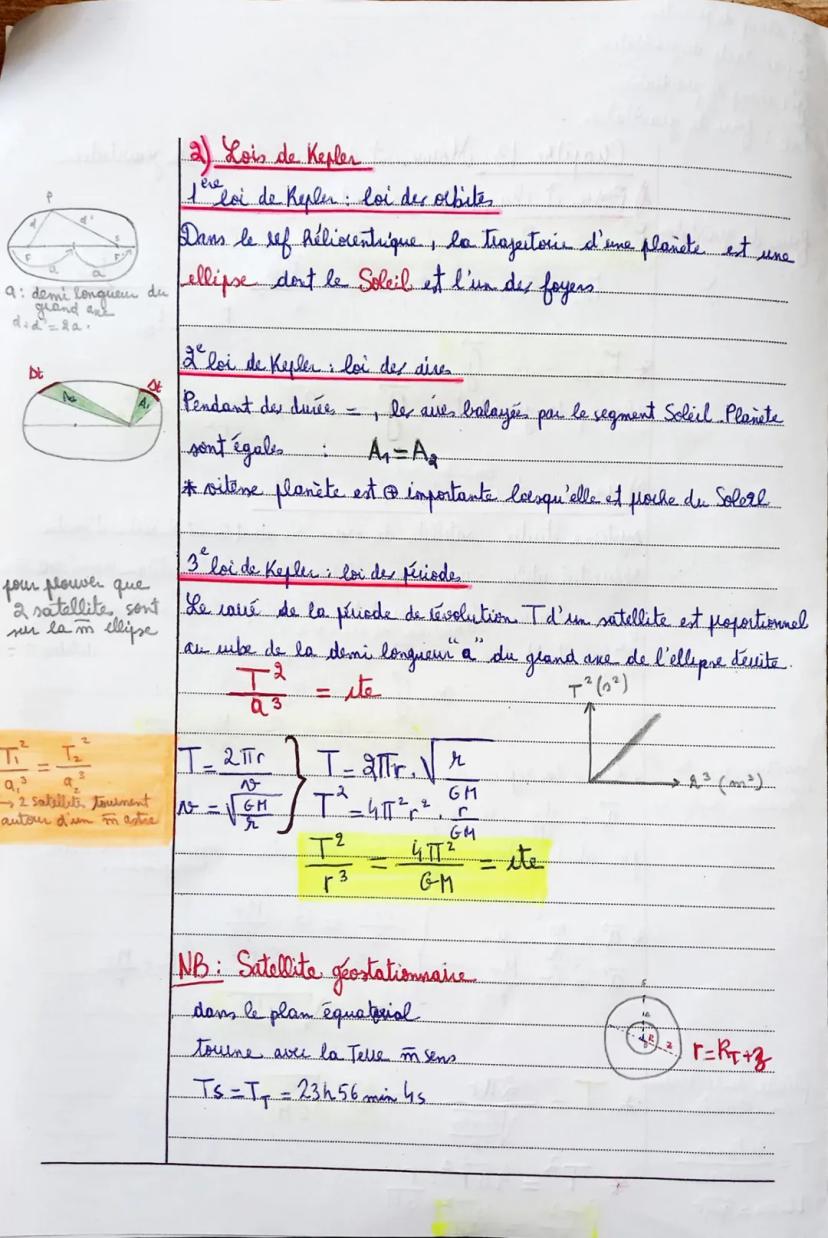 2) Lois de Kepler
1ère loi de Kepler : loi des orbites
P
d d'
F S F'
a a
Dans le ref héliocentrique, la trajectoire d'une planète est une
ellipse dont le Soleil est l'un des foyers
a : demi longueur du
grand axe
d+d' = 2a.
2e loi de Kepler : loi des aires
Dt Dt
A2 A1
Pendant des durées =, les aires balayées par le segment Soleil-Planète
sont égales : A1 = A2
* vitesse planète est ⊕ importante lorsqu'elle est proche du Soleil
3e loi de Kepler : loi des périodes
pour prouver que
2 satellites sont
sur la m̄ ellipse
=
Le carré de la période de révolution T d'un satellite est proportionnel
au cube de la demi longueur "a" du grand axe de l'ellipse décrite.
T²/a³ = cte
T²(s²)
r³(m³)
T1²/a1³ = T2²/a2³
→ 2 satellites tournent
autour d'un m̄ astre
T = 2πr/v } T = 2πr.√(r/GM)
v = √(GM/r) T² = 4π²r².r/GM
T²/r³ = 4π²/GM = cte
NB : Satellite géostationnaire
dans le plan équatorial
tourne avec la Terre m̄ sens
r = RT + z
Ts = TT = 23h 56 min 4s